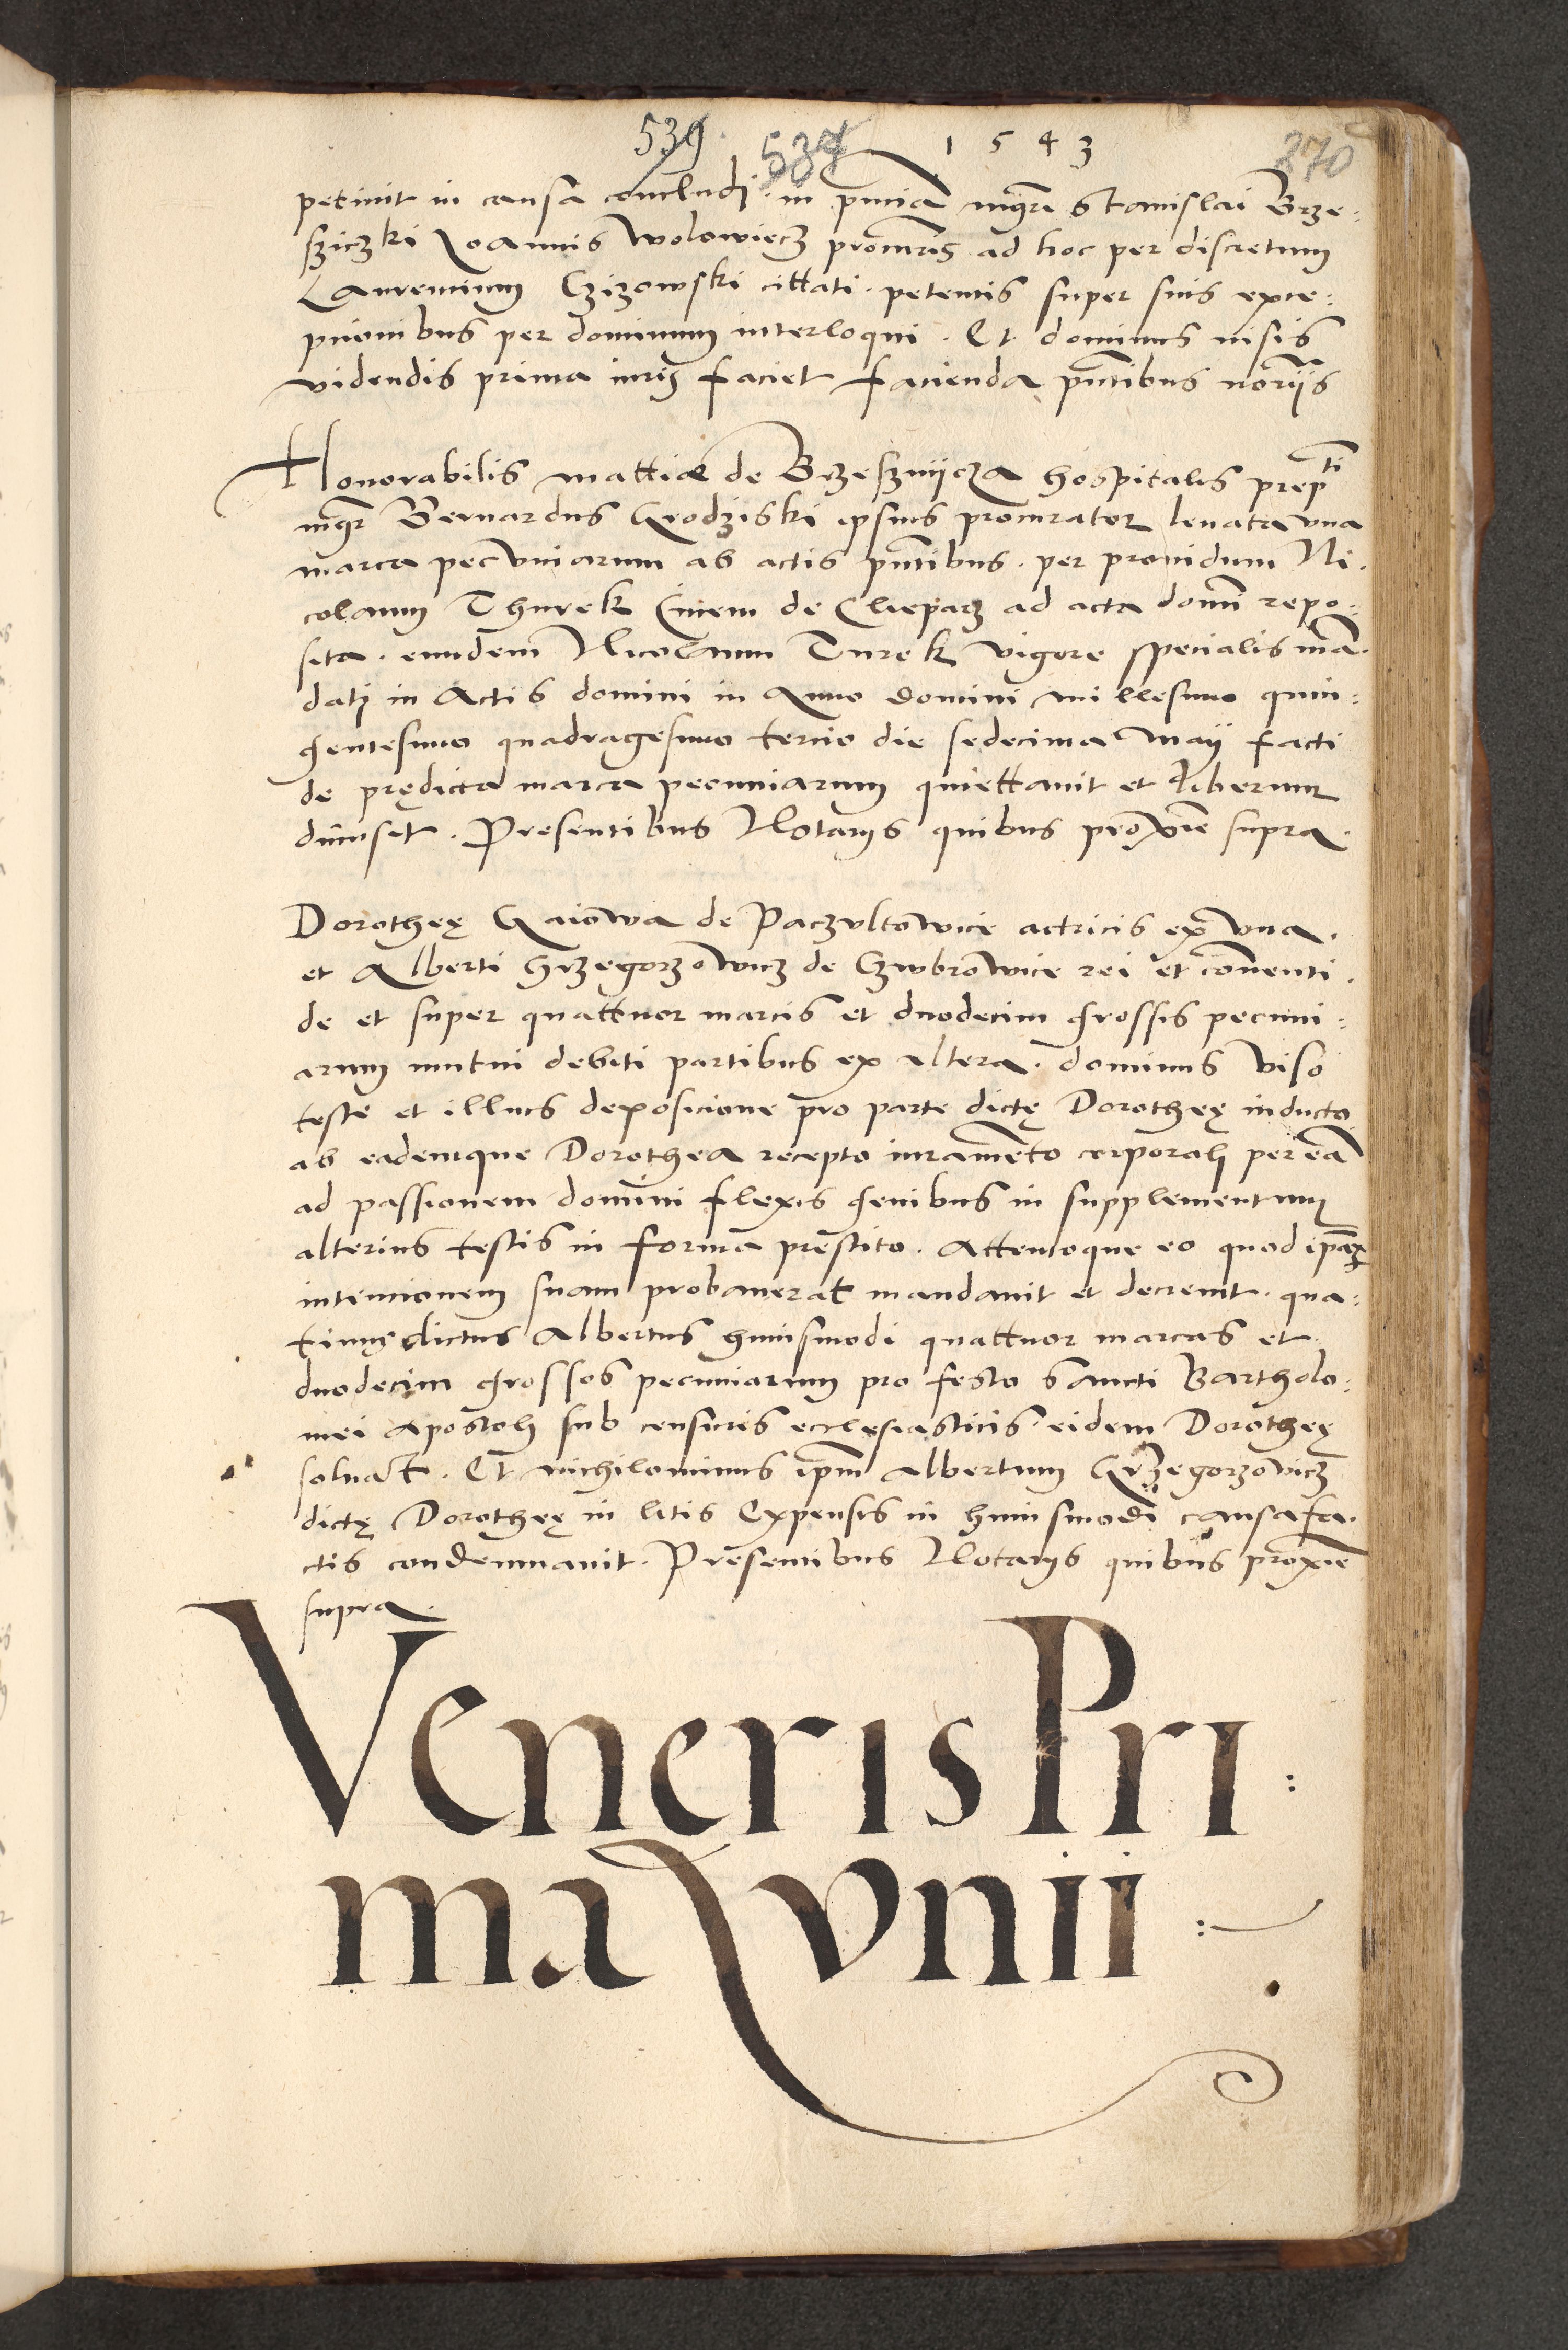 539 534 1 5 4 3 270
petiuit in causa concludi in pnciã mgri Stanislai Brze:
sziczki Ioannis Wolowiecz procuris ad hoc per discretum
Laurencium Czizowski cittati petentis super suis exce:
pcionibus per dominum interloqui. Et dominus visis
videndis prima iuris faciet facienda pntibus notrijs
Honorabilis mattiæ de Brzesznijcza hospitalis prepti
mgr Bernardus Grodziski ipsius procurator leuata vna
marca pecuniarum ab actis pntibus per prouidum Ni.
colaum Thurek Ciuem de Clieparz ad acta domi repo:
sita. eundem Nicolaum Turek vigore specialis mã.
dati in Actis domini in Anno domini millesimo quin:
gentesimo quadragesimo tercio die sedecima Maij facti
de prędicta marca pecuniarum quiettauit et liberum
dimisit. Presentibus Notarijs quibus proxie supra.
Dorotheę Gaiowa de Paczultowice actricis ex vna.
et Alberti Grzegorzowicz de Czwbrowice rei et conuenti.
de et super quattuor marcis et duodecim grossis pecuni:
arum mutui debiti partibus ex altera. dominus viso
teste et illius deposicione pro parte dictę Dorotheę inducto
ab eademque Dorothea recepto iuramẽto corporali per eã
ad passionem domini flexis genibus in supplementum
alterius testis in forma prestito. Attentoque eo quod ipa
intencionem suam probauerat mandauit et decreuit. qua:
tinus dictus Albertus huiusmodi quattuor marcas et
duodecim grossos pecuniarum pro festo Sancti Bartholo:
mei Apostoli sub censuris ecclesiasticis eidem Dorotheę
soluat. Et nichilominus ipm Albertum Grzegorzovicz
dictę Dorotheę in litis Expensis in huiusmodi causa fa.
ctis condemnauit. Presentibus Notarijs quibus proxie
supra.
Veneris Pri:
ma Iunii: